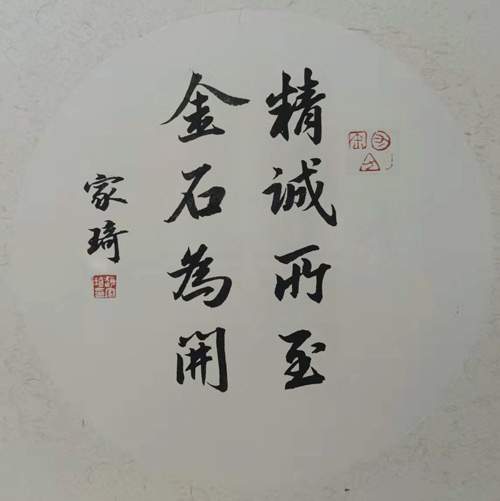 精诚所至
金石為開
家琦